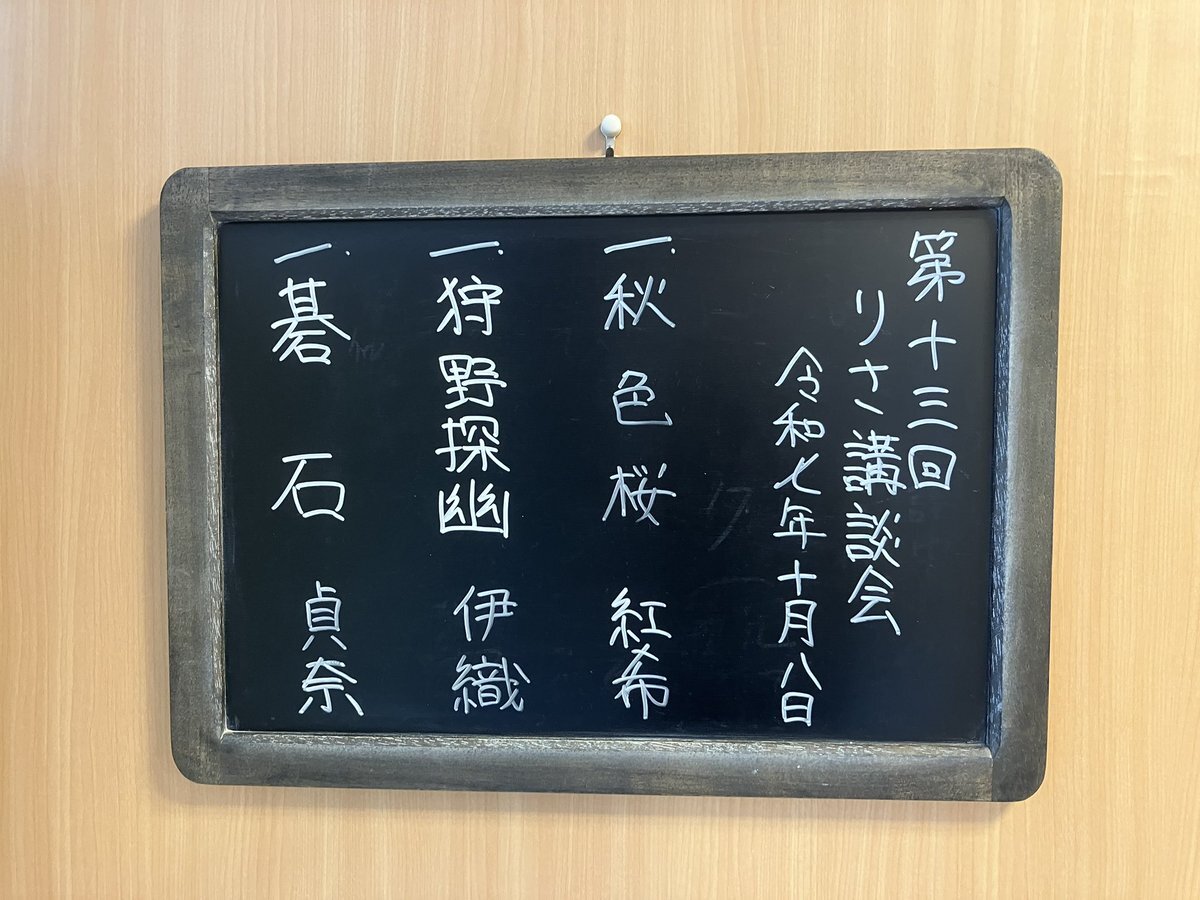 第十三回
りさ講談会
令和七年十月八日
一.秋色桜 紅希
一.狩野探幽 伊織
一.碁石 貞奈